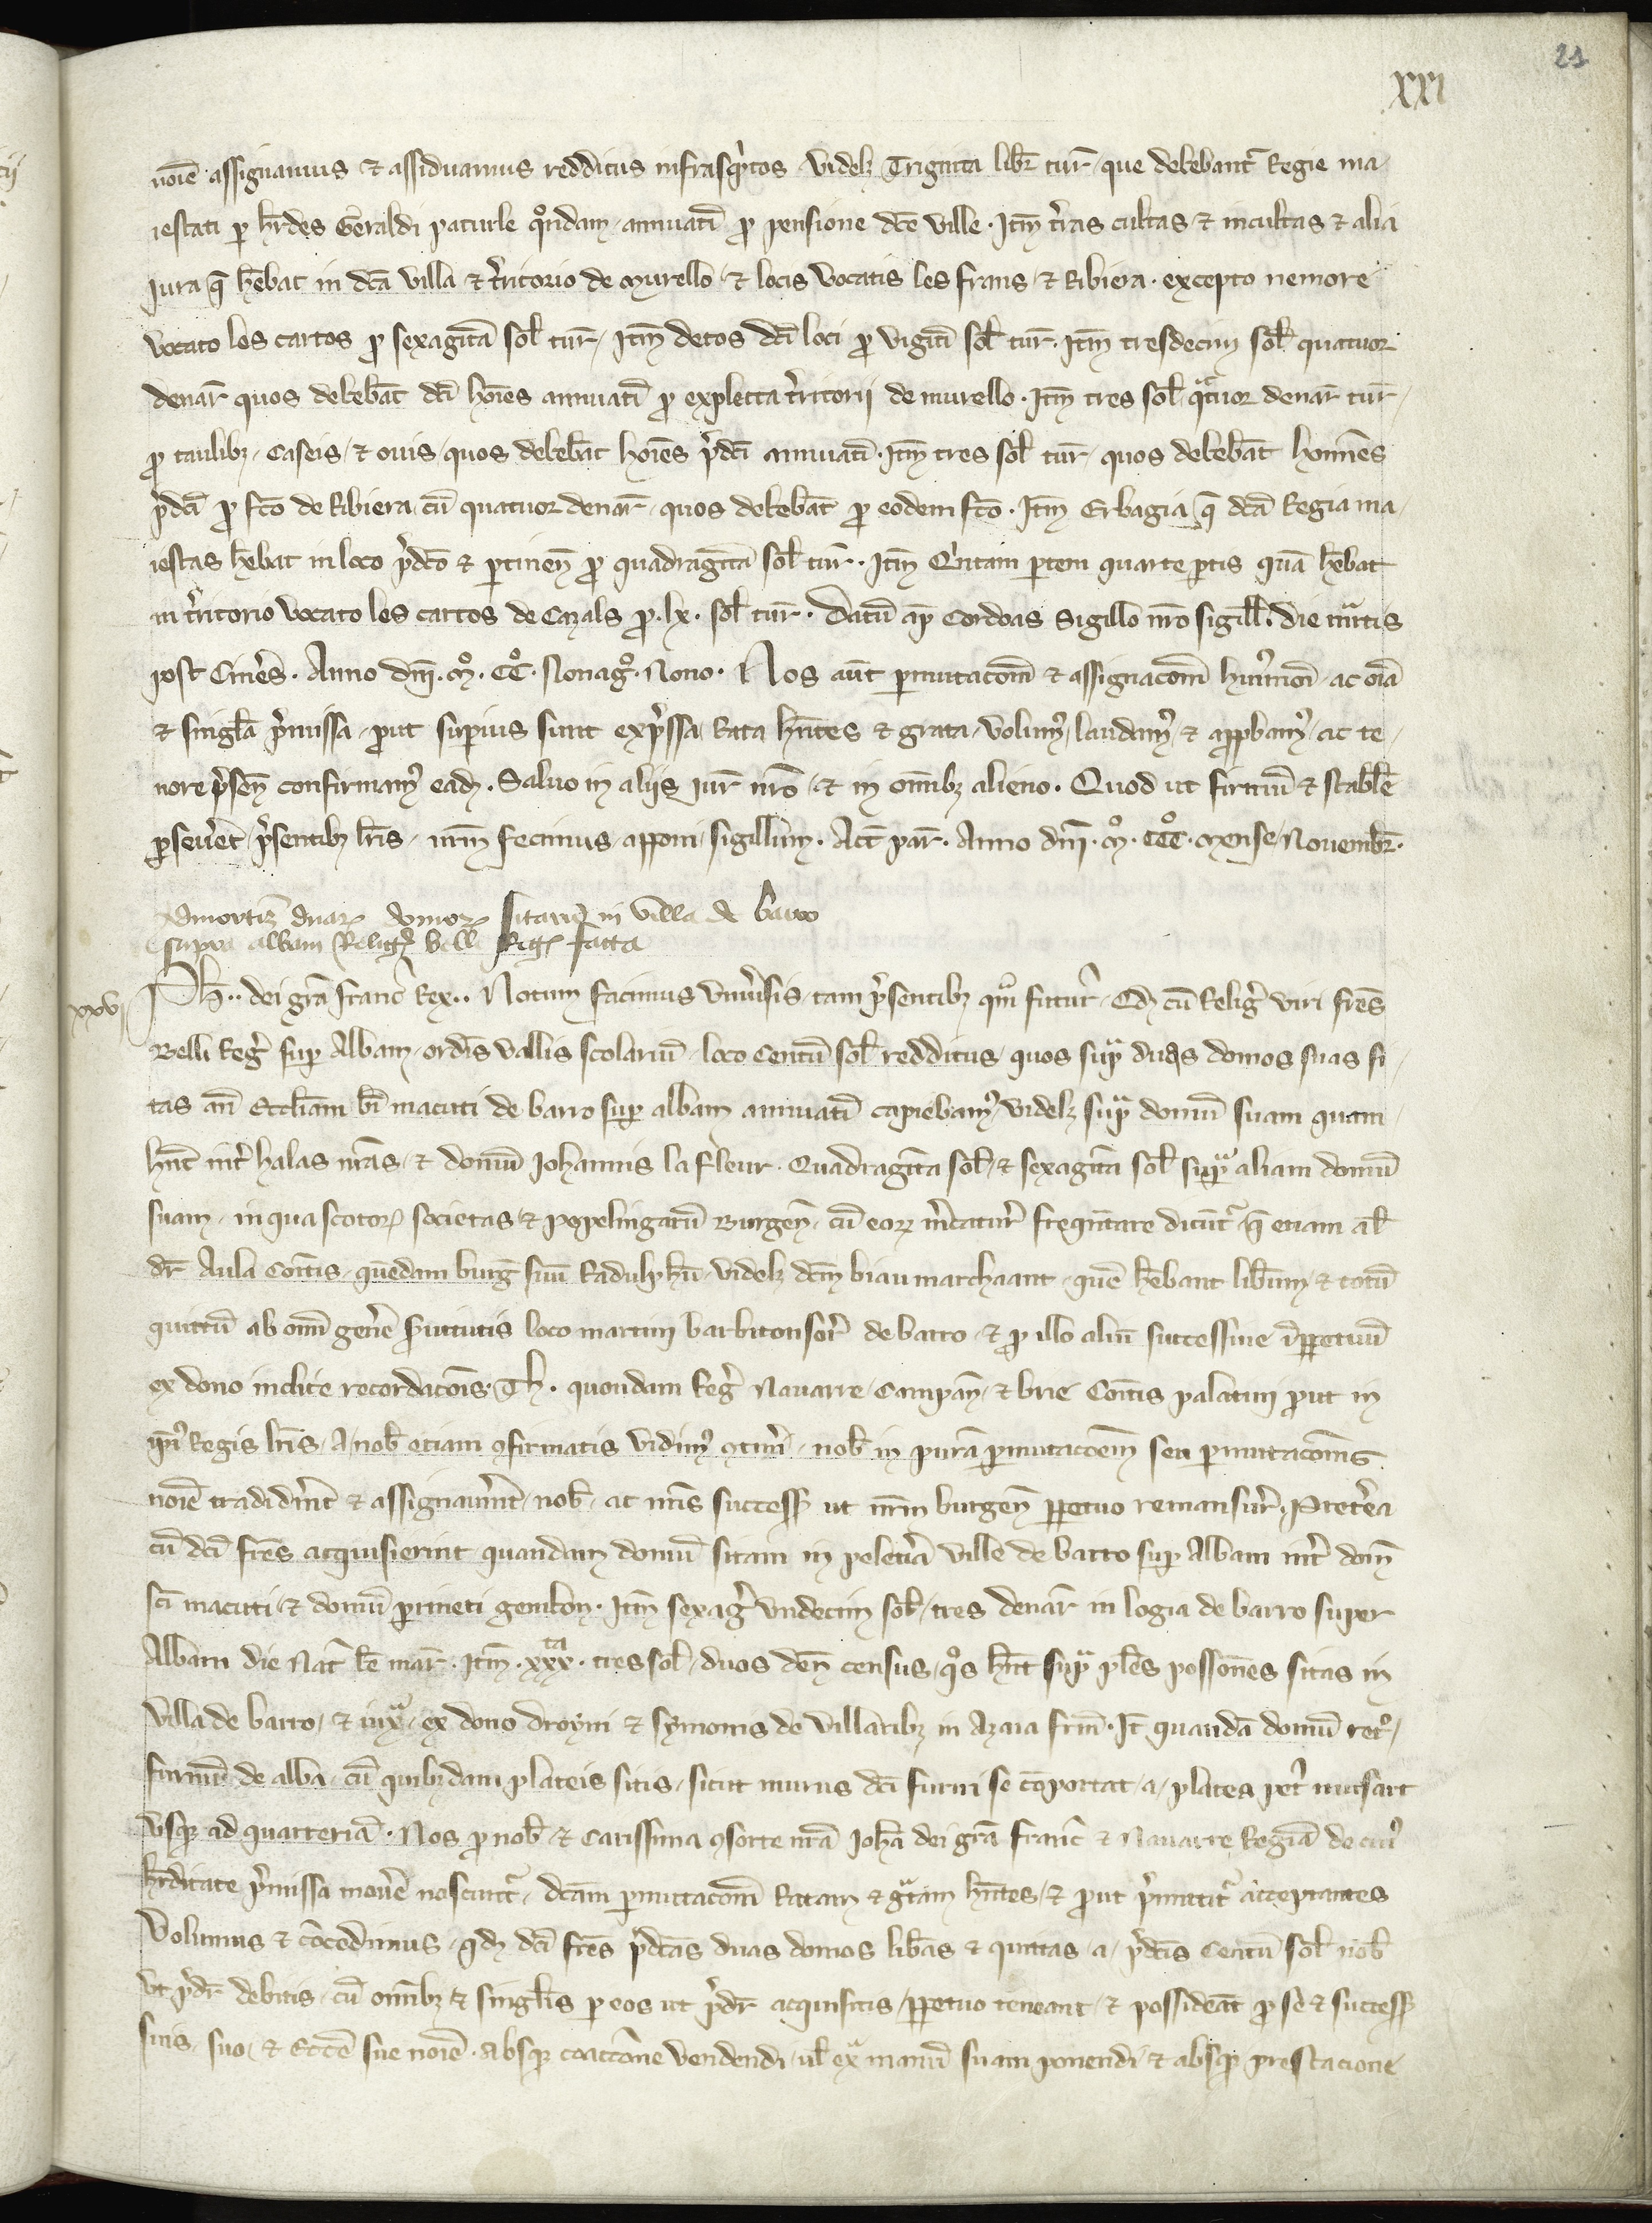 21
XXI
noīe assignamus et assiduamus redditus infrasc̄ptos videlꝫ Triginta libr̄ tur̄ que debebant᷑ Regie ma
iestati ꝑ hr̄des Geraldi paturle q̊ndam annuatī ꝓ pensione dc̄e ville. Itm̄ t̄ras cultas et incultas et alia
Iura q̄ hēbat in dc̄a villa et t̄ritorio de Murello et locis vocatis les frans et Ribiera. excepto nemore
vocato les cartos ꝓ sexagītā sol̄ tur̄. Itm̄ detos dc̄i loci ꝓ vigītī sol̄ tur̄. Itm̄ tresdecim sol̄ quatuor
denar̄ quos debebāt dc̄i hoīes annuatī ꝓ expletta t̄ritorij de murello. Itm̄ tres sol̄ qᵃtuor denar̄ tur̄
ꝓ caulibꝫ caseis et ovis quos debebāt hoīes p̄dc̄i annuatī. Itm̄ tres sol̄ tur̄ quos debebāt hoīnes
p̄dc̄i ꝓ fc̄o de Ribiera cū quatuor denar̄ quos debebāt ꝓ eodem fc̄o. Itm̄ Erbagia q̄ dc̄a Regia ma
iestas hēbat in loco p̄dc̄o et ꝑtinen̄ ꝓ quadragītā sol̄ tur̄. Itm̄ Q̄itam ꝑtem quarte ꝑtis quā hēbat
in t̄ritorio vocato les cartos de Cazals ꝓ .lx. sol̄ tur̄. Datū ap̄ Cordoas Sigillo nr̄o sigill̄. die mᵃrtis
post Cineres. Anno dn̄i .Mº. CCº. Nonagº. Nono. Nos aūt ꝑmutacōm̄ et assignacōm̄ hui᷒mōi ac oīa
et singl̄a p̄missa ꝓut suꝑius sunt exp̄ssa Rata hn̄tes et grata volum᷒ laudam᷒ et aꝓbam᷒ ac te
nore p̄sen̄ confirmam᷒ eadꝫ. Salvo in aliis iur̄ nr̄o et in oīmbꝫ alieno. Quod ut firmū et stabl̄e
ꝑsev̄et p̄sentibꝫ lr̄is nr̄m fecimus apponi sigillum. Act̄ par̄. Anno dn̄i .Mº. CCCº. mense Novembr̄.
Admortiz̄ duaꝝ domoꝝ sitarū in villa de barro
supra albam Religꝰ belli Regꝰ facta
xxvj
Ph̄.. dei gr̄a franc̄ Rex.. Notum facimus univ̄sis tam p̄sentibꝫ qᵐ futur̄. Qđ cū Religꝰ viri fr̄es
Belli Regꝰ suꝑ Albam ordis vallis scolariū loco Centū sol̄ redditus quos supᵃ duas domos suas si
tas an̄ Eccliam bī macuti de barro suꝑ albam annuatī capiebam᷒ videlꝫ supᵃ domū suam quam
hn̄t int̄ halas nr̄as et domū Johannis la fleur. Quadragīta sol̄ et sexagīta sol̄ supᵃ aliam domū
suam in qua scotoꝝ societas et Popelingatū Burgen̄ cū eoꝝ m̄catur̄ freqn̄tare dicūt᷑ q̄ etiam al̄
dr̄ Aula Comitis quēdam burg̃ suū Radulphū videlꝫ dc̄m biaumarchaant quē hēbant libm̄ et totū
quittū ab oīmī gen̄e s̄vitutis loco martini barbitonsor̄ de barro et ꝓ illo aliū successive īꝑpetuū
ex dono inclite recordacōis Th. quondam Regꝰ Navarre Campan̄ et brie Comitis palatini ꝓut in
ip̄i᷒ Regis lr̄is a nob̄ etiam ꝯfirmatis vidim᷒ ꝯtin̄i nob̄ in purā ꝑmutacōem seu ꝑmutacōnis
noīe tradider̄t et assignaver̄t nob̄ ac nr̄is successꝰ ut nr̄m burgen̄ ꝑpetuo remansur̄. Preterea
cū dc̄i fr̄es acquisierint quandam domū sitam in peletiā ville de barro suꝑ Albam int̄ dom̄
sc̄i macuti et domū perineti genikon. Itm̄ sexagꝰ undecim sol̄ tres denar̄ in logia de barro super
Albam die Nat̄ be mar̄. Itm̄ .xxxᵗᵃ. tres sol̄ duos den̄ census qᵒs hn̄t supᵃ pl̄es possiones sitas in
villa de barro et iuxᵃ ex dono droyni et symonis de villaribꝫ in Azaia frm̄. It̄ quandā domū retᵒ
furnū de alba cū quibꝫdam plateis sitis sicut murus dc̄i furni se cōportat a platea petꝰ mussart
usqꝫ ad quarreriā. Nos ꝓ nob̄ et Carissima ꝯsorte nr̄a Joh̄a dei gr̄a franc̄ et Navarre Reginā de cui᷒
hr̄ditate p̄missa mov̄e noscunt᷑ dc̄am ꝑmutacōm̄ Ratam et gᵃtam hn̄tes et ꝓut p̄mittit᷑ acceptantes
Volumus et cōcedimus qđ dc̄i fr̄es p̄dc̄as duas domos lib̄as et quittas a p̄dc̄is Centū sol̄ nob̄
ut p̄dr̄ debitis cū oīmbꝫ et singl̄is ꝑ eos ut p̄dr̄ acquisitis ꝑpetuo teneant et possideāt ꝓ se et successꝰ
suis suo et Eccē sue noīe absqꝫ coactione vendendi ul̄ exᵃ manū suam ponendi et absqꝫ prestacione